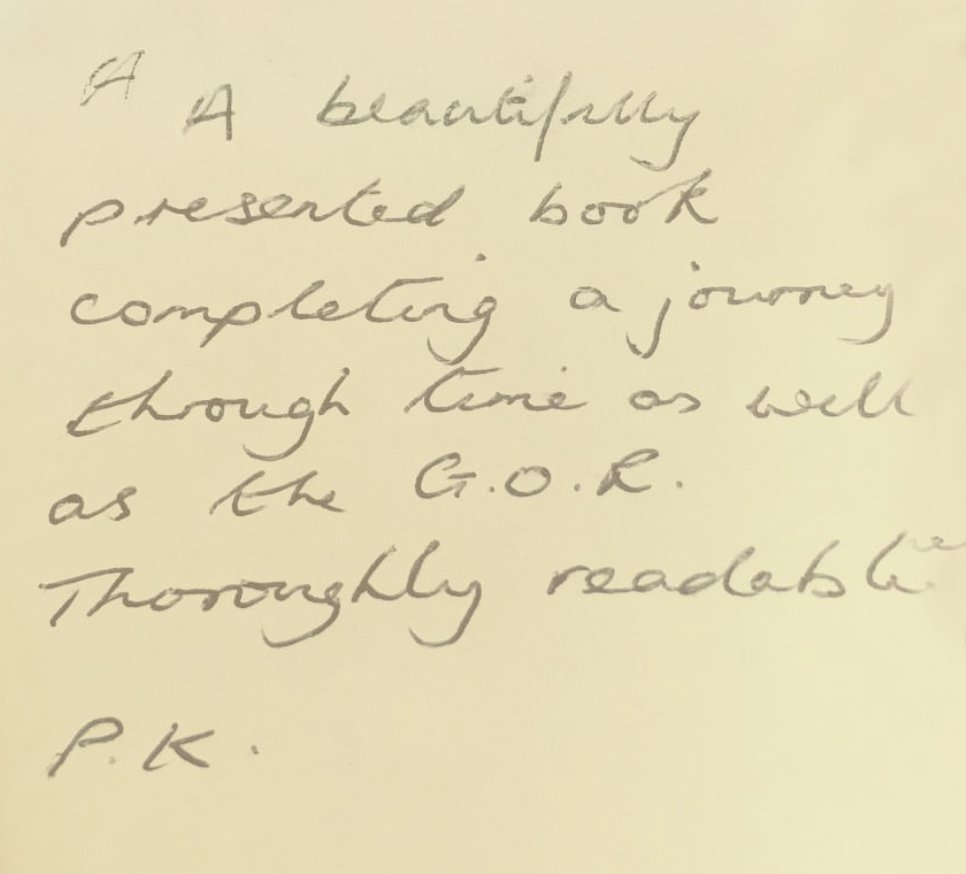 A A beautifully
presented book
completing a journey
through time as well
as the G.O.R.
Thoroughly readable
P.K.